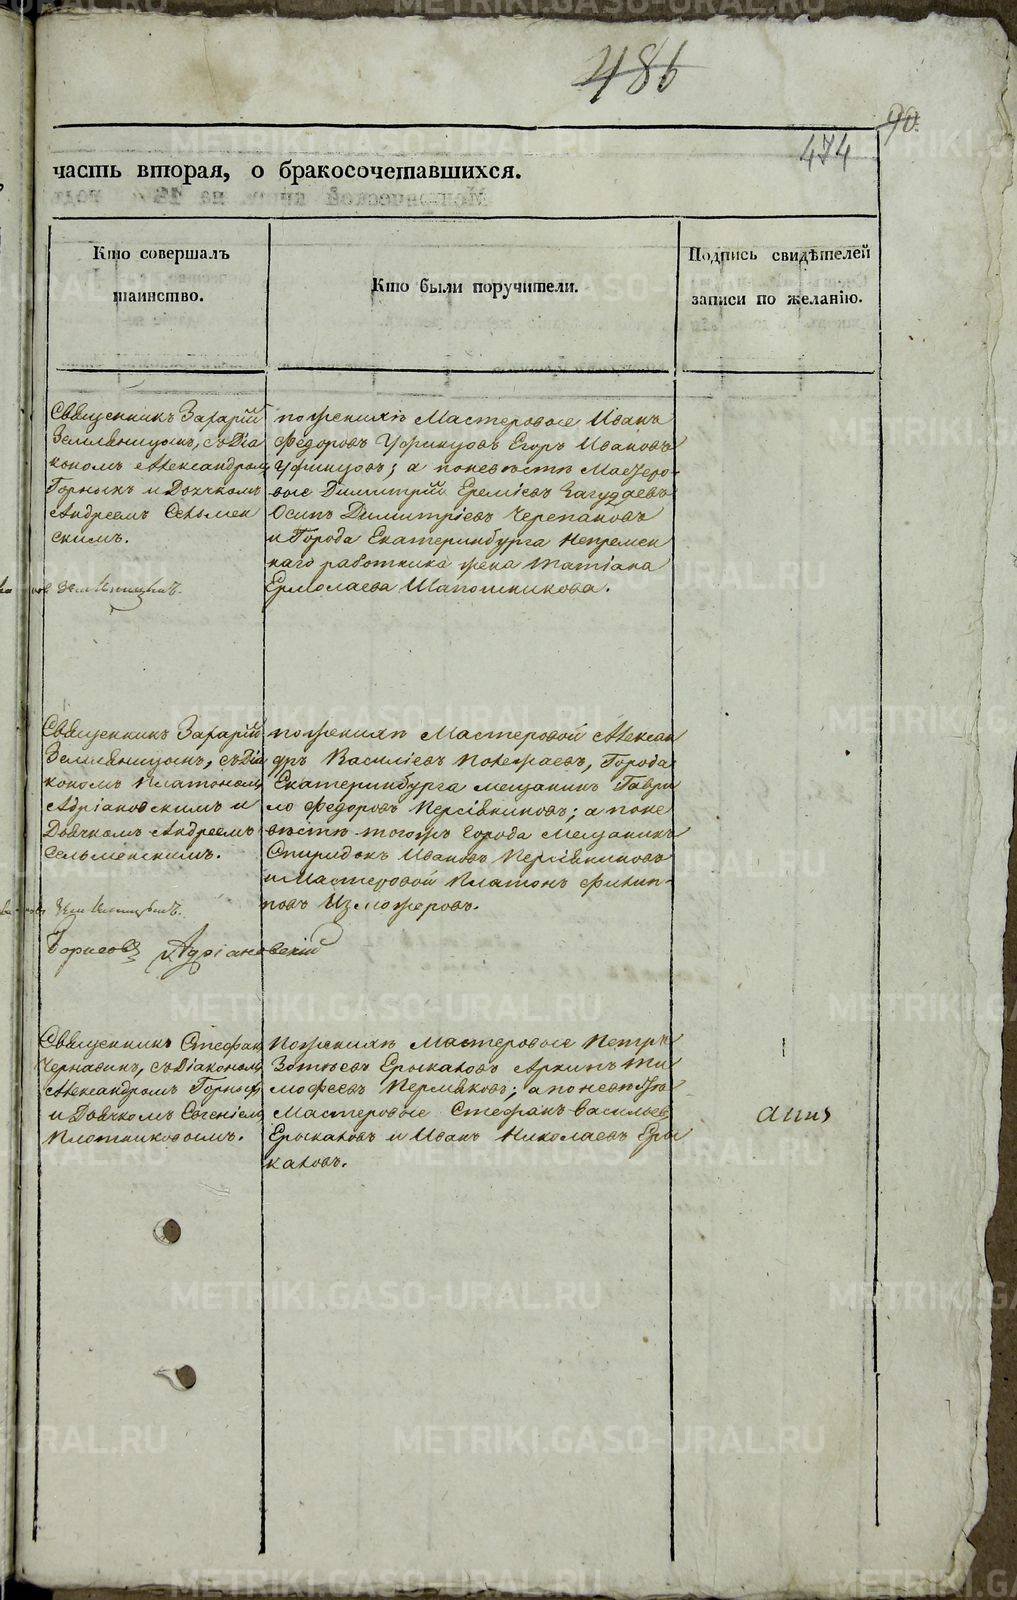 486
90.
474
часть вторая, о бракосочетавшихся.
Кто совершалъ
таинство.
Кто были поручители.
Подпись свидѣтелей
записи по желанію.
Священникъ Захарій
Земляницынъ, съ Діа
кономъ Александромъ
Горныхъ и Дьячкомъ
Андреемъ Сельмен
скимъ.
по женихѣ Мастеровые Иванъ
Федоровъ Уфинцовъ Егоръ Ивановъ
Уфинцовъ; а по невѣстѣ Мастеро-
вые Димитрій Еремѣевъ
Осипъ Димитріевъ Черепановъ
и Города Екатеринбурга Непремен
наго работника жена Татіана
Ермолаева Шапошникова.
Священникъ Захарій
Земляницынъ, съ Діа
кономъ Платономъ
Адріановскимъ и
Дьячкомъ Андреемъ
Сельменскимъ.
по женихѣ Мастеровой Алексан
дръ Василіевъ Полежаевъ, Города
Екатеринбурга мещанинъ Гаври
ло Федоровъ; а по не
вѣстѣ тогожъ Города Мещанинъ
Спиридонъ Ивановъ
и Мастеровой Платонъ Филип-
повъ Изможеровъ.
Борисовъ Адріановскій
Священникъ Стефанъ
Чернавинъ, съ Діакономъ
Александромъ Горныхъ
и Дьячкомъ Евгеніемъ
Плотниковымъ.
По женихѣ Мастеровые Петръ
Зотѣевъ Ерыкаловъ Архипъ Ти
мофеевъ Пермяковъ; а по невѣстѣ
Мастеровые Стефанъ Васильевъ
Ерыкаловъ и Иванъ Николаевъ Еры
каловъ.
METRIKI.GASO-URAL.RU